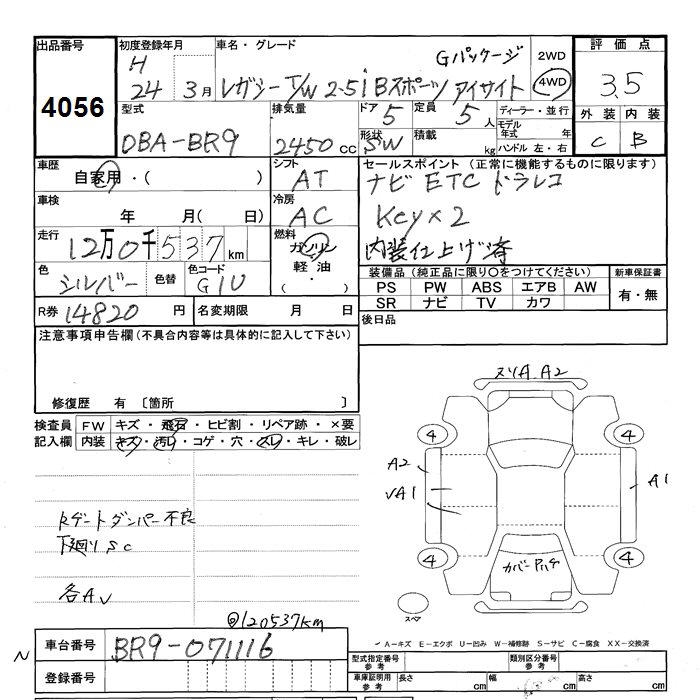 出品番号
4056
初度登録年月
H 24 3月
車名・グレード
Gパッケージ
レガシーT/W 2.5i Bスポーツ アイサイト
2WD
4WD
評価点
3.5
外装 内装
C B
型式
DBA-BR9
排気量
2450 cc
ドア
5
形状
SW
定員
5人
積載
kg
ディーラー・並行
モデル年式 年
ハンドル 左・右
車歴
自家用・( )
シフト
AT
車検
年 月( 日)
冷房
AC
走行
12万0千537km
燃料
ガソリン
軽油
・( )
色
シルバー
色替
色コード
G1U
R券 14820 円
名変期限 月 日
セールスポイント(正常に機能するものに限ります)
ナビ ETC ドラレコ
Key×2
内装仕上げ済
装備品(純正品に限り○をつけてください)
PS PW ABS エアB AW
SR ナビ TV カワ
新車保証書
有・無
後日品
注意事項申告欄(不具合内容等は具体的に記入して下さい)
修復歴 有 〔箇所 〕
検査員記入欄
FW キズ・飛石・ヒビ割・リペア跡・×要
内装 キズ・汚レ・コゲ・穴・スレ・キレ・破レ
ヌリA A2
4 4
A2
A1
√A1
4 4
カバーPハゲ
スペア
Rゲートダンパー不良
下廻りSC
各A√
◎120537km
A-キズ E-エクボ U-凹み W-補修跡 S-サビ C-腐食 XX-交換済
N
車台番号 BR9-071116
登録番号
型式指定番号 参考
類別区分番号 参考
車庫証明用 参考
長さ cm 幅 cm 高さ cm